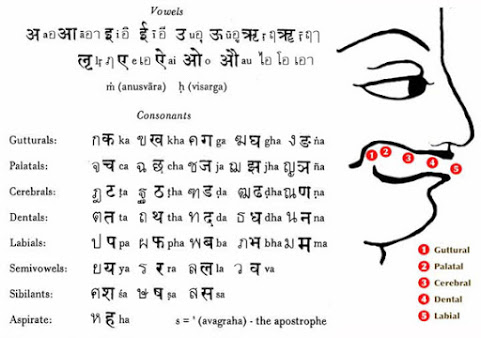 Vowels
अ aอ आ āอา इ iอิ ई īอี उ uอุ ऊ ūอู ऋ ṛฤ ॠ ṝฤๅ
ऌ ḷฦ ए eเอ ऐ ai ओ o औ au ไอ โอ เอา
ṁ (anusvāra) ḥ (visarga)
Consonants
Gutturals: กक ka ขख kha คग ga ฆघ gha งङ ṅa
Palatals: จच ca ฉछ cha ชज ja ฌझ jha ญञ ña
Cerebrals: ฏट ṭa ฐठ ṭha ฑड ḍa ฒढ ḍha ณण ṇa
Dentals: ตत ta ถथ tha ทद da ธध dha นन na
Labials: ปप pa ผफ pha พब ba ภभ bha มम ma
Semivowels: ยय ya รर ra लล la วव va
Sibilants: ศश śa ษष ṣa สस sa
Aspirate: หह ha s = ' (avagraha) - the apostrophe
1 2 3 4 5
1 Guttural
2 Palatal
3 Cerebral
4 Dental
5 Labial